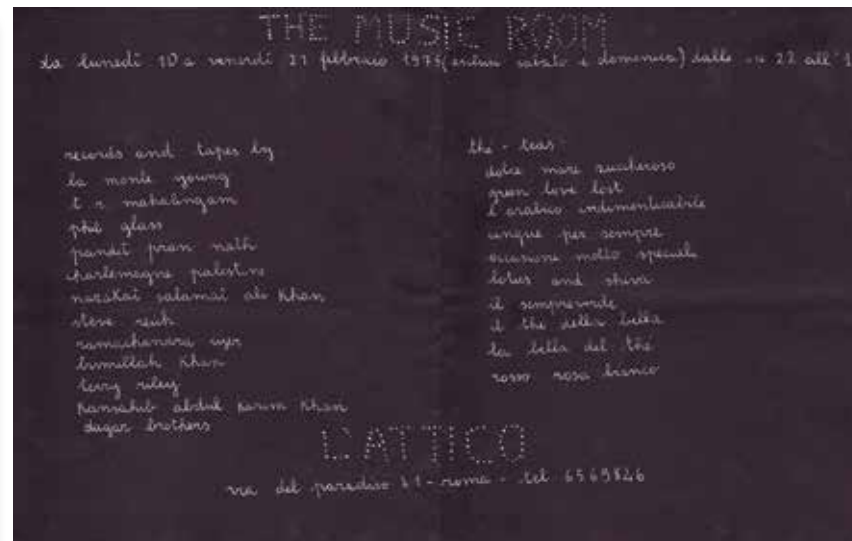 THE MUSIC ROOM
da lunedì 10 a venerdì 21 febbraio 1975 (esclusi sabato e domenica) dalle ore 22 all'1
records and tapes by
la monte young
t r mahalingam
phil glass
pandit pran nath
charlemagne palestine
nazakat salamat ali khan
steve reich
ramachandra iyer
bismillah khan
terry riley
kansahib abdul karim khan
dagar brothers
the - teas:
dolce mare zuccheroso
green love lost
l'arabico indimenticabile
cinque per sempre
occasione molto speciale
lotus and shiva
il sempreverde
il thè della bella
la bella del thè
rosso rosa bianco
L'ATTICO
via del paradiso 41 - roma - tel 6569846